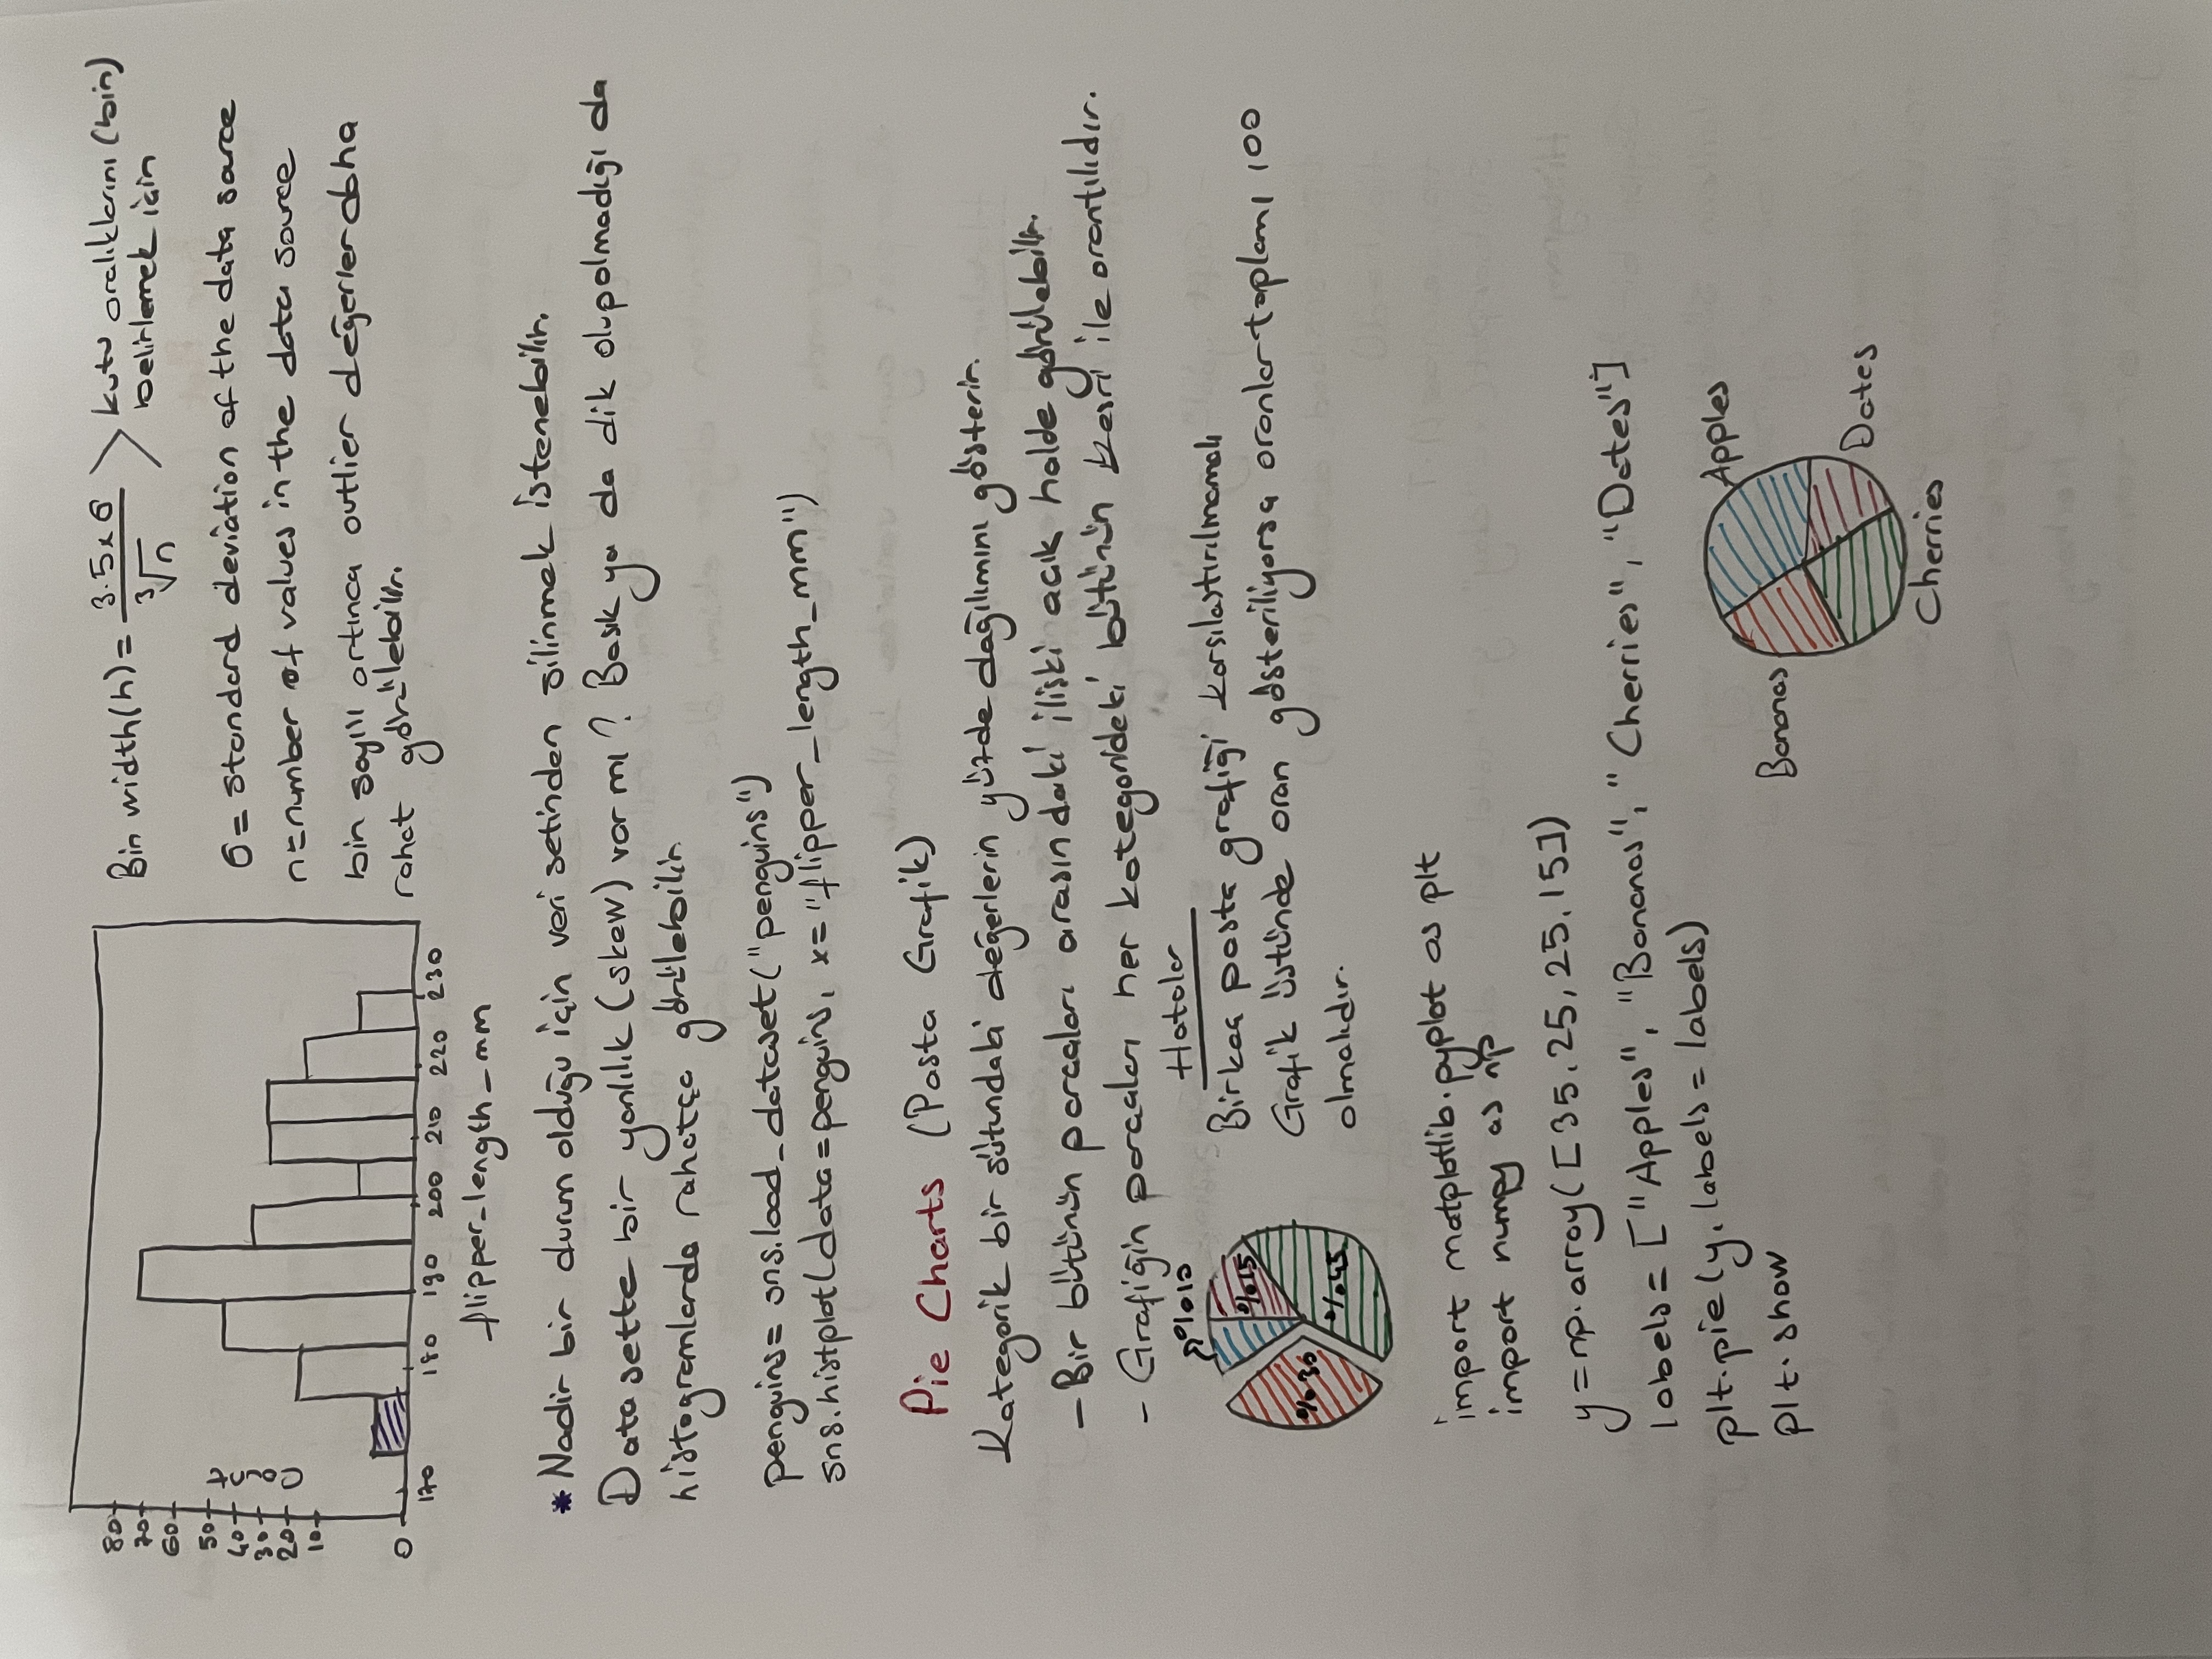 80
70
60
50
40
30
20
10
0
Count
170 180 190 200 210 220 230
flipper_length_mm
Bin width(h) = 3.5xσ / ³√n > kutu aralıklarını (bin)
belirlemek için
σ = standard deviation of the data source
n = number of values in the data source
bin sayısı artınca outlier değerler daha
rahat görülebilir.
* Nadir bir durum olduğu için veri setinden silinmek istenebilir.
Data sette bir yanlılık (skew) var mı? Basık ya da dik olup olmadığı da
histogramlarda rahatça görülebilir
penguins= sns.load_dataset("penguins")
sns.histplot(data=penguins, x="flipper_length_mm")
Pie Charts (Pasta Grafik)
Kategorik bir sütundaki değerlerin yüzde dağılımını gösterir.
- Bir bütünün parcaları arasındaki iliski acık halde görülebilir.
- Grafiğin parcaları her kategorideki bütünün kesri ile orantılıdır.
%10
%15
%30
%45
Hatalar
Birkaç pasta grafiği karsılastırılmamalı
Grafik üstünde oran gösteriliyorsa oranlar toplamı 100
olmalıdır.
import matplotlib.pyplot as plt
import numpy as np
y = np.array([35, 25, 25, 15])
labels = ["Apples", "Bananas", "Cherries", "Dates"]
plt.pie(y, labels = labels)
plt.show
Apples
Bananas
Dates
Cherries